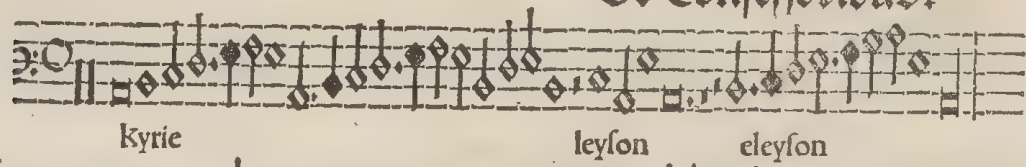 Kyrie leyſon eleyſon